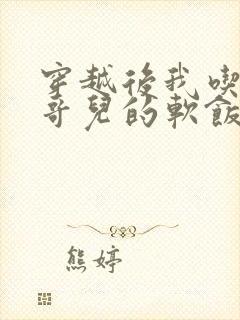 穿越後我喫
哥兒的軟飯
熊婷